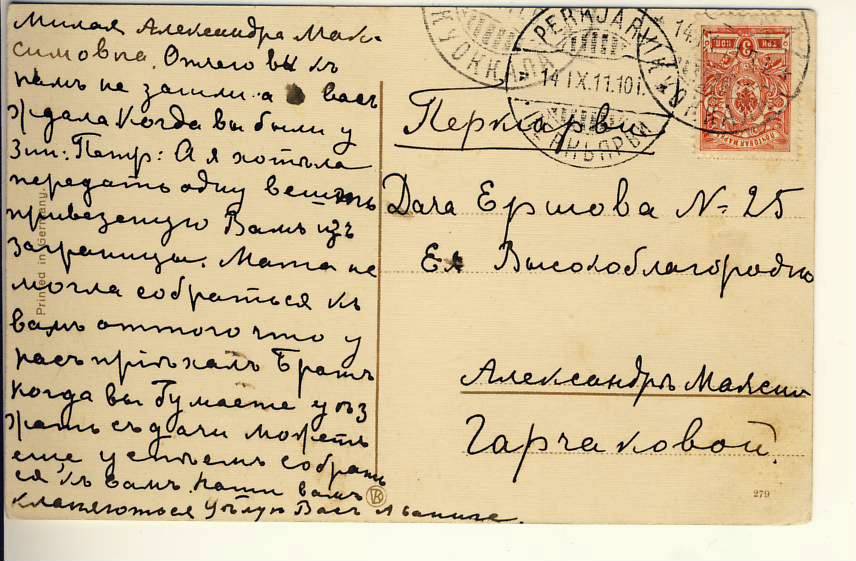 Милая Александра Мак-
симовна. Отчего вы къ
намъ не зашли а я васъ
ждала когда вы были у
Зин: Петр: А я хотѣла
передать одну вещь
привезеную Вамъ изъ
заграницы. Мама не
могла собраться къ
вамъ оттого что у
насъ пріѣхалъ братъ
когда вы думаете уѣз
жать съ дачи можетъ
еще успѣемъ собрать
ся къ вамъ. наши вамъ
кланяются цѣлую Васъ
Printed in Germany.
KUOKKALA
PERKJÄRVI
14.IX.11.10 i.
ПЕРКЪЯРВИ
14.
3 КОП 3 КОП
ПОЧТОВАЯ МАРКА
Перкярви
Дача Ершова № 25
Ея Высокоблагородию
Александрѣ Максим
Гарчаковой.
279